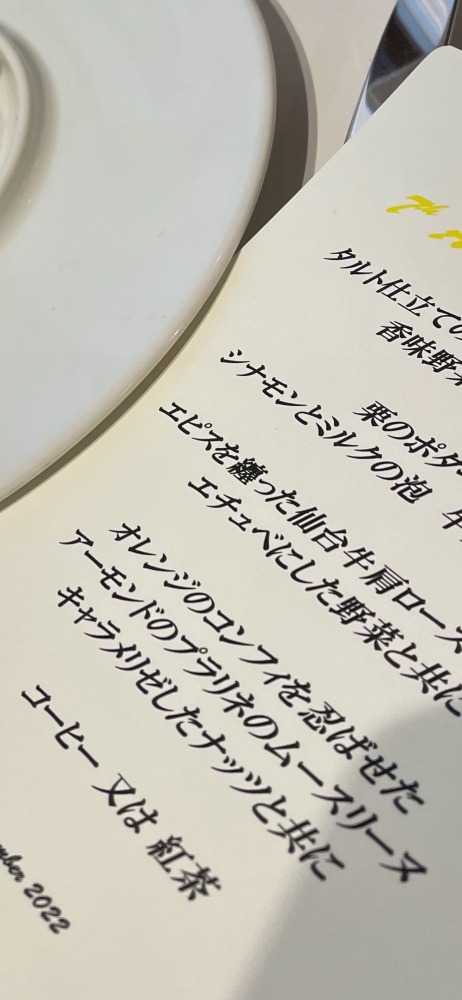 7th
タルト仕立ての
香味野菜
栗のポタ
シナモンとミルクの泡 牛
エピスを纏った仙台牛肩ロース
エチュベにした野菜と共に
オレンジのコンフィを忍ばせた
アーモンドのプラリネのムースリーヌ
キャラメリゼしたナッツと共に
コーヒー 又は 紅茶
mber 2022